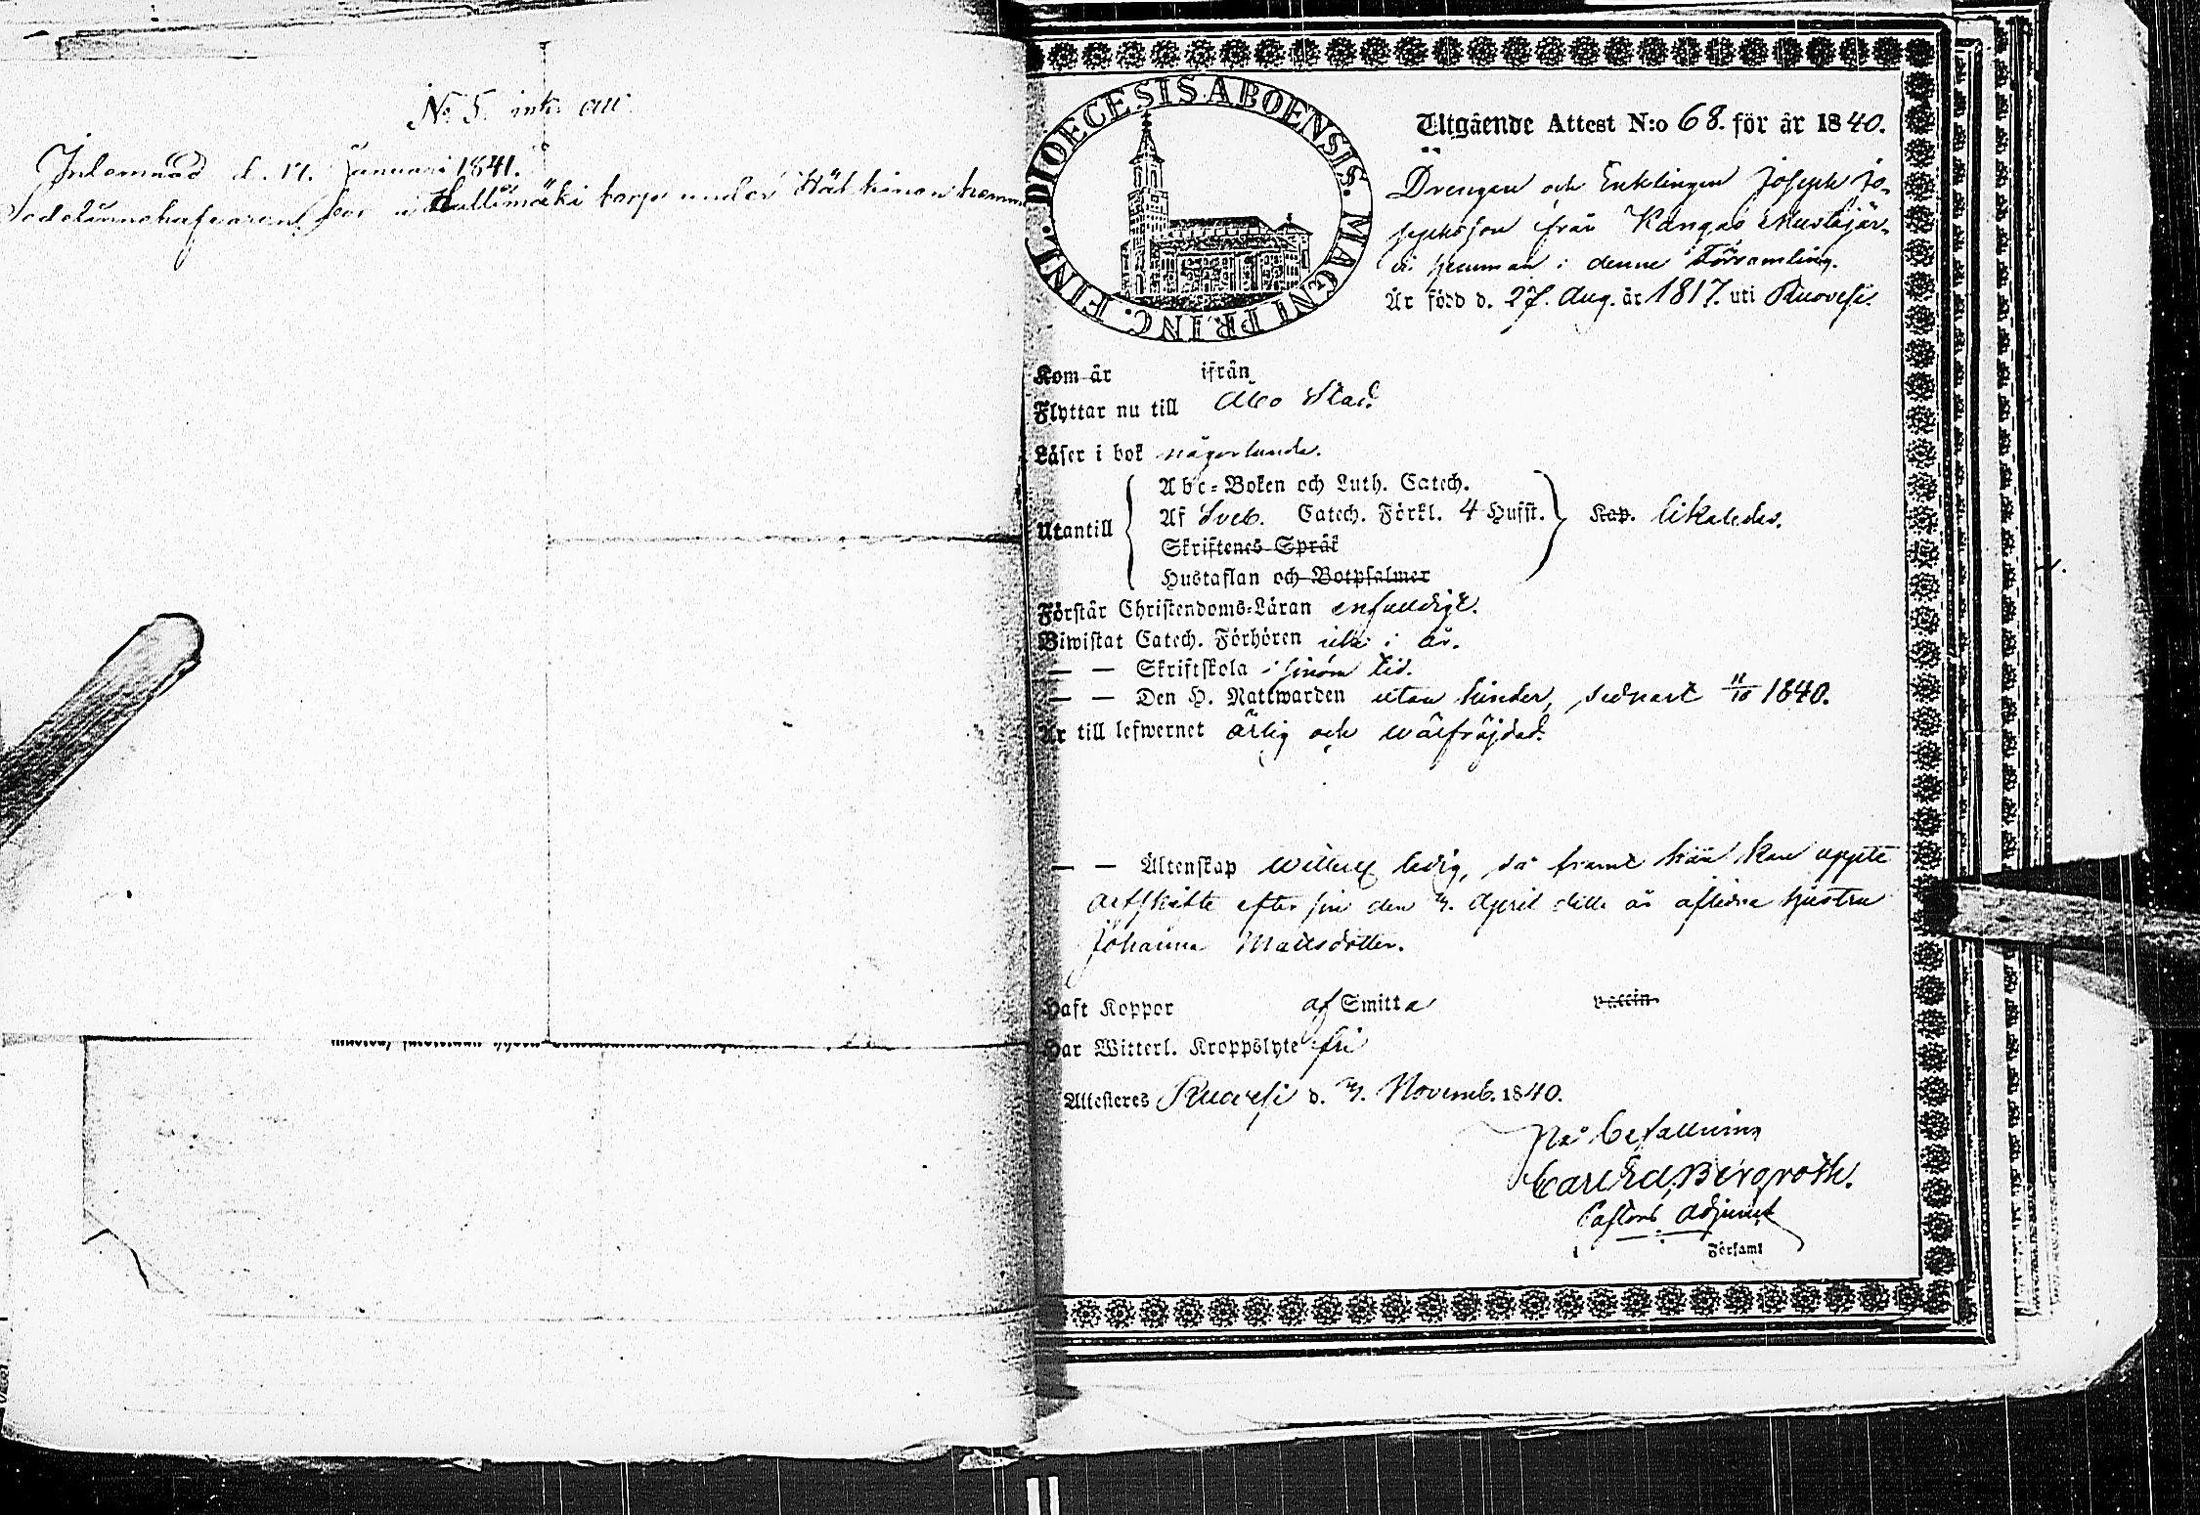 No 5. ink. att
Inlemnad d. 17. Januari 1841.
Sedelinnehafvaren bor i Kallimäki torp under hemm
DIOECESIS ABOENSIS. MAGNI PRINC. FINL.
Utgående Attest N:o 68. för år 1840.
Drengen och Enklingen Joseph Jo-
sephsson ifrån Kangas Mustajär-
vi hemman i denne Församling.
Är född d. 27. Aug. år 1817. uti Ruovesi.
Kom år ifrån
Flyttar nu till Åbo Stad.
Läser i bok någorlunda.
Abc-Boken och Luth. Catech.
Utantill Af Sveb. Catech. Förkl. 4 Hufst. Kap. likaledes.
Skriftenes Språk
Hustaflan och Botpsalmer
Förstår Christendoms-Läran enfaldigt.
Biwistat Catech. Förhören i år.
— — Skriftskola i sinom tid.
— — Den H. Nattwarden utan hinder, sednast 11/10 1840.
Är till lefwernet ärlig och wälfräjdad.
— — Äktenskap ledig, så framt han kan uppte
arfskifte efter sin den 3. April detta år aflidna hustru
Johanna Mattsdotter.
Haft Koppor af Smitta vaccin.
Har Witterl. Kroppslyte fri
Attesteres Ruovesi d. 3. Novemb. 1840.
På befallning
Carl Ed. Bergroth.
Pastors Adjunct
i Församl